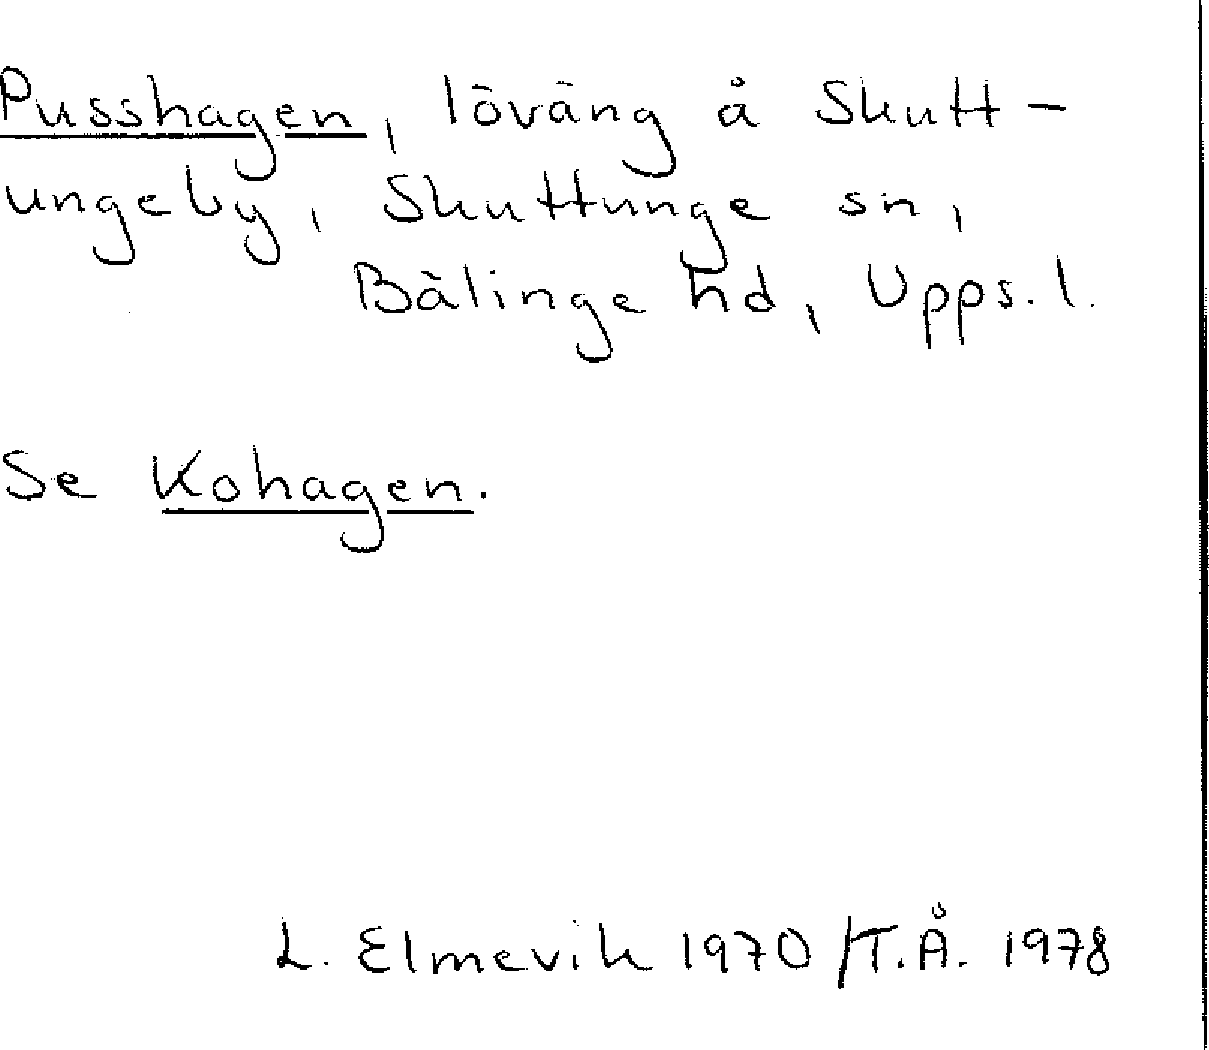 Pusshagen, löväng å Skutt-
ungeby, Skuttunge sn,
Bälinge hd, Upps.l.
Se Kohagen.
L. Elmevik 1970/T.Å. 1978